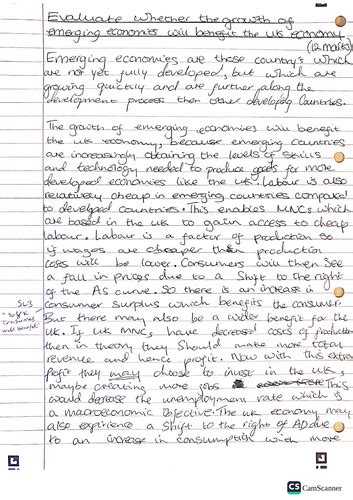 Evaluate whether the growth of
emerging economies will benefit the UK economy.
(12 marks)
Emerging economies are those country's which
are not yet fully developed, but which are
growing quickly and are further along the
development process then other developing Countries.
The growth of emerging economies will benefit
the UK economy, because emerging Countries
are increasingly obtaining the levels of skills
and technology needed to produce goods for more
developed economies like the UK. Labour is also
relatively cheap in emerging countries compared
to developed countries. This enables MNCs which
are based in the UK to gain access to cheap
labour. Labour is a factor of production so
if wages are cheaper then production
costs will be lower. Consumers will then see
a fall in prices due to a shift to the right
of the AS curve. So there is an increase in
consumer surplus which benefits the consumer.
But there may also be a wider benefit for the
UK. If UK MNC, have decreased costs of production
then in theory they should make more total
revenue and hence profit. Now with this extra
profit they may choose to invest in the UK,
maybe creating more jobs This
would decrease the unemployment rate which is
a macroeconomic objective. The UK economy may
also experience a shift to the right of AD due
to an increase in consumption with more
CS CamScanner